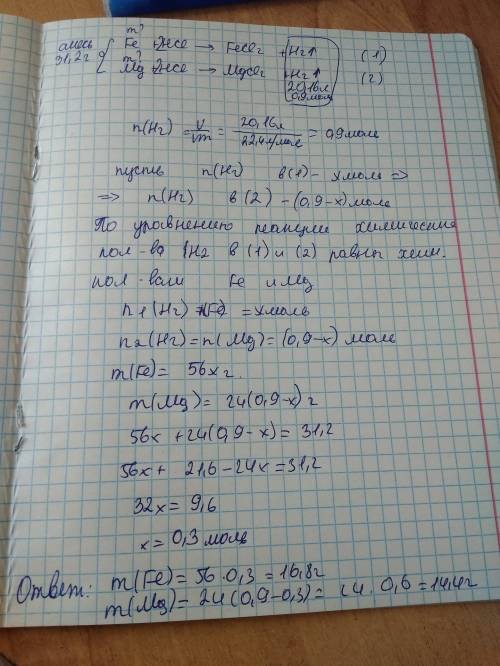 m?
смесь { Fe + 2HCl → FeCl2 + H2↑ (1)
31,2г m?
Mg + 2HCl → MgCl2 + H2↑ (2)
20,16л
0,9моль
n(H2) = V/Vm = 20,16л/22,4л/моль = 0,9моль
пусть n(H2) в (1) - x моль =>
=> n(H2) в (2) - (0,9-x) моль
По уровнению реакции химические
кол-ва H2 в (1) и (2) равны хим.
кол-вам Fe и Mg
n1(H2) = nFe = x моль
n2(H2) = n(Mg) = (0,9-x) моль
m(Fe) = 56x г.
m(Mg) = 24(0,9-x) г
56x + 24(0,9-x) = 31,2
56x + 21,6 - 24x = 31,2
32x = 9,6
x = 0,3 моль
Ответ: m(Fe) = 56 · 0,3 = 16,8г
m(Mg) = 24(0,9-0,3) = 24 · 0,6 = 14,4г